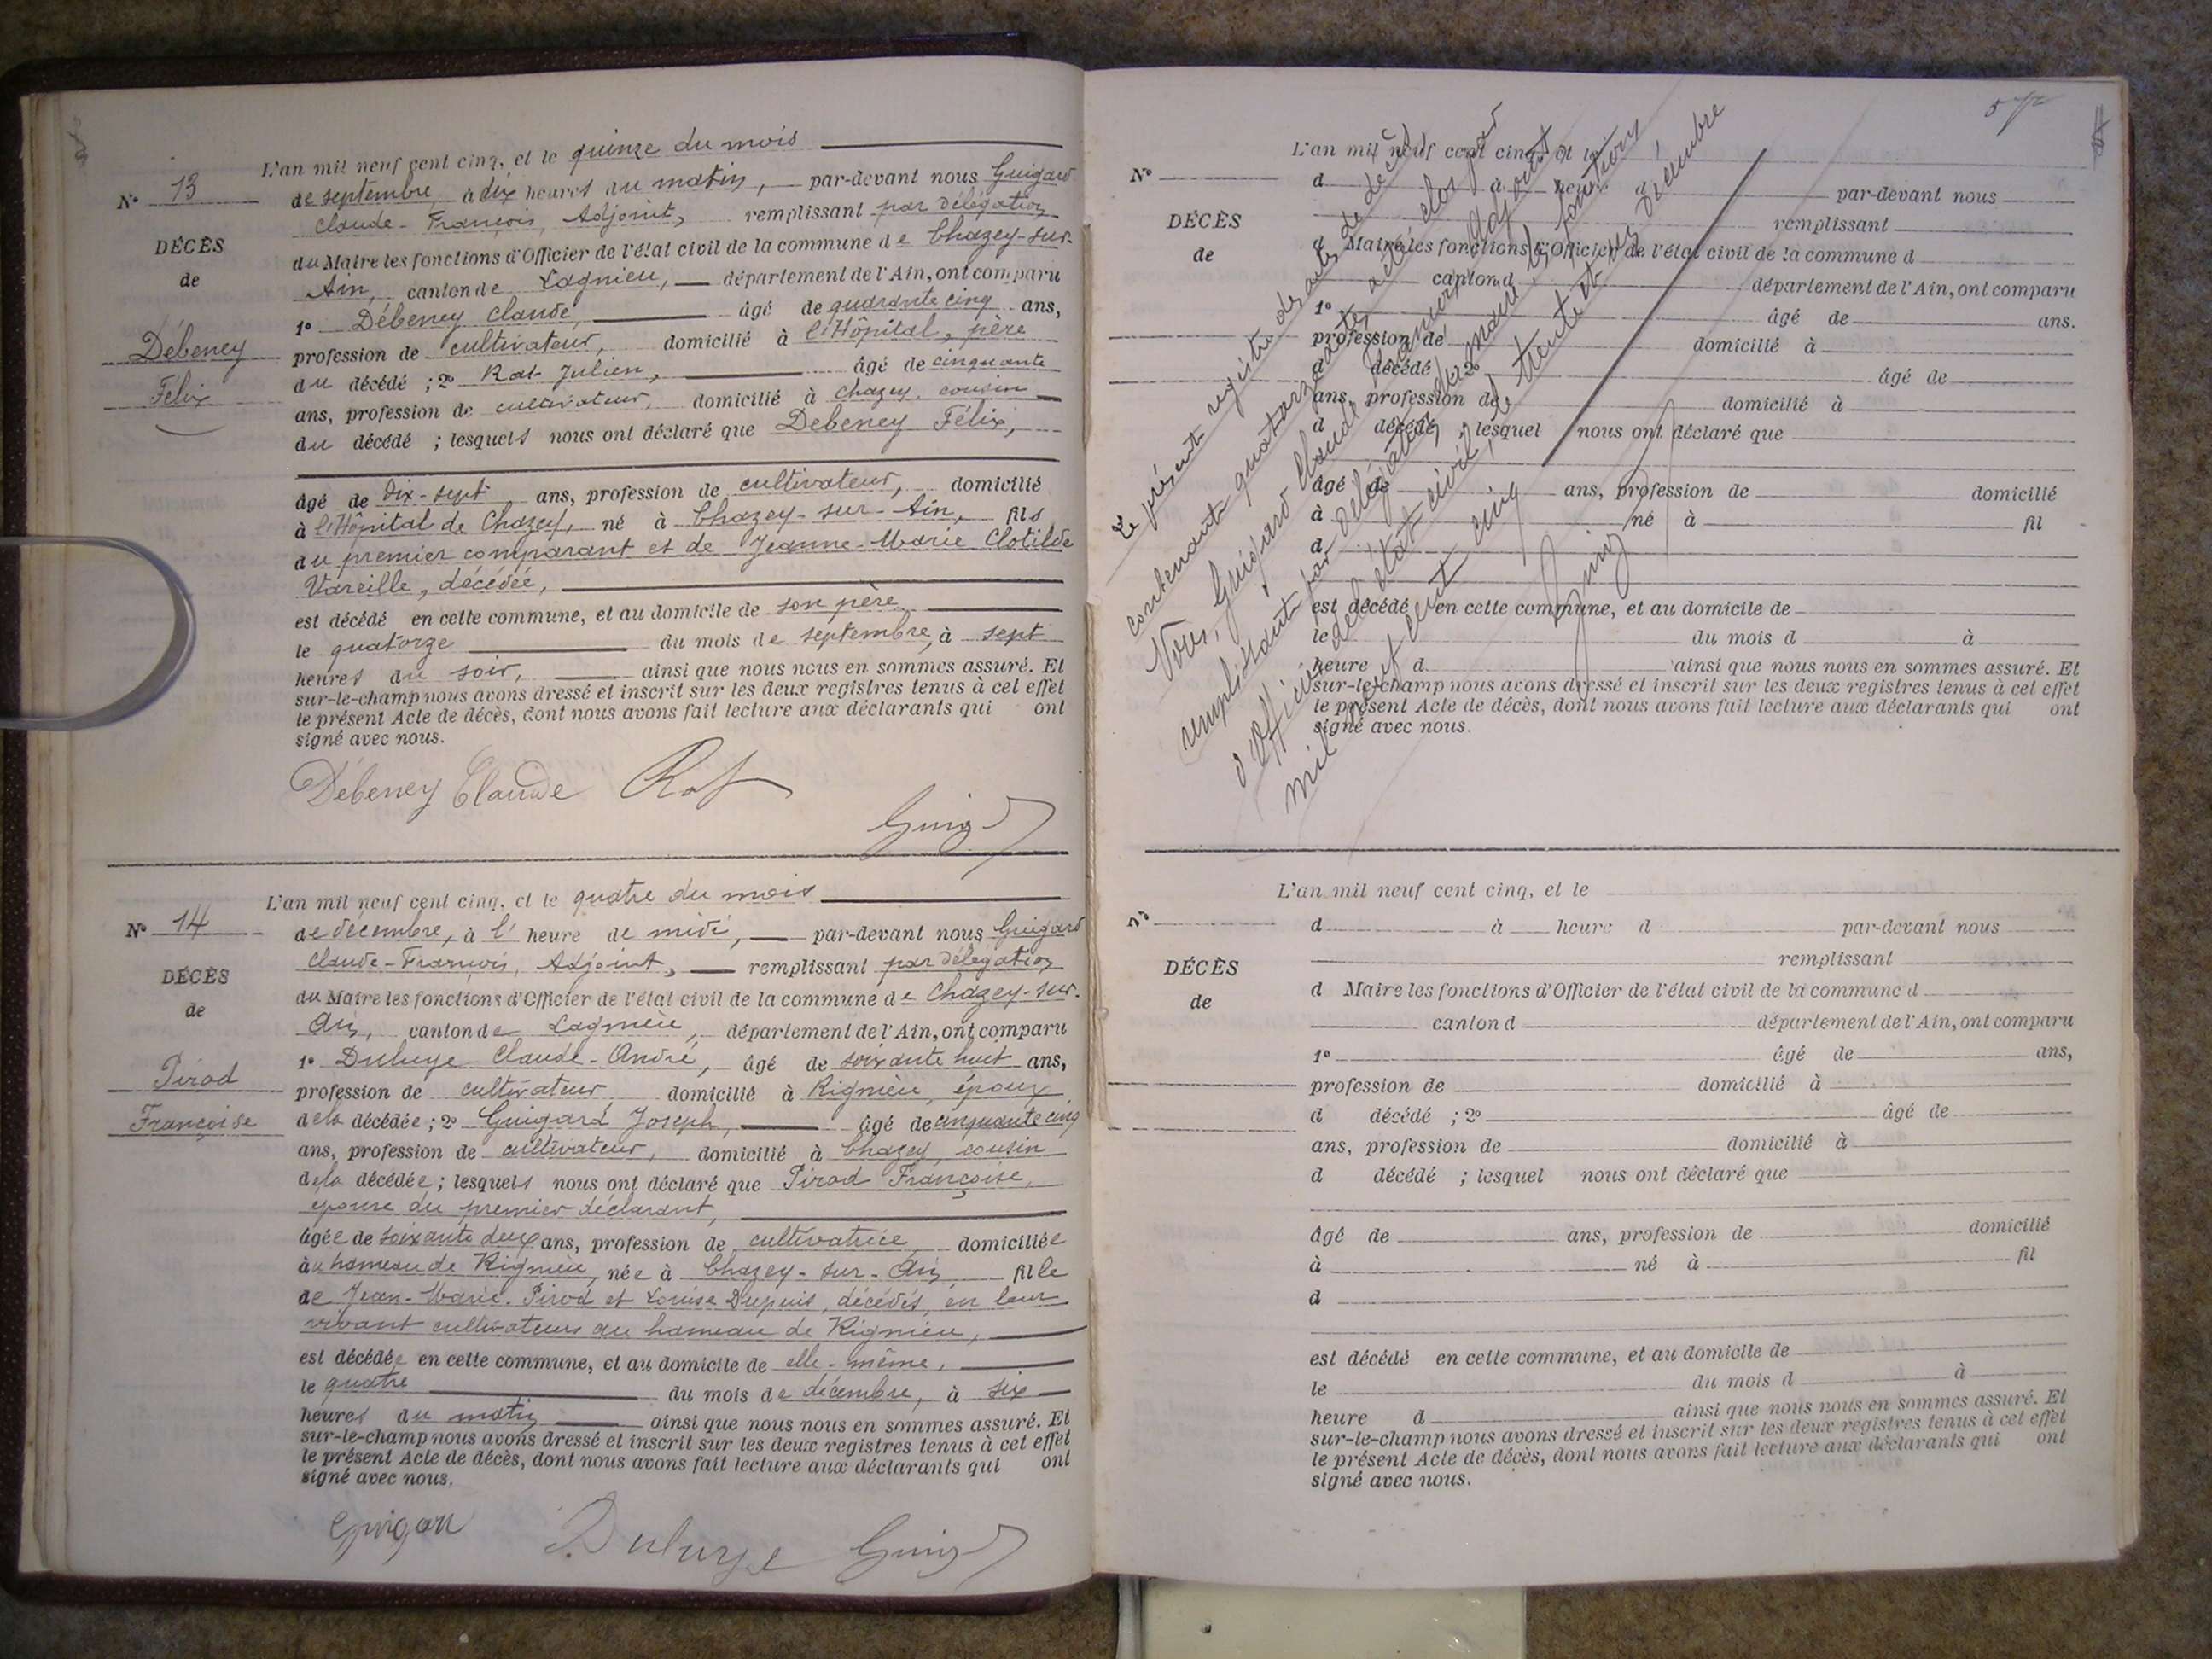 L'an mil neuf cent cinq, et le quinze du mois
N° 13
de septembre, à dix heures du matin, par-devant nous Guigard
Claude-François, Adjoint, remplissant par délégation
DÉCÈS
du Maire les fonctions d'Officier de l'état civil de la commune de Chazey-sur-
de
Ain, canton de Lagnieu, département de l'Ain, ont comparu
1° Débeney Claude, âgé de quarante cinq ans,
Débeney
profession de cultivateur, domicilié à l'Hôpital, père
du décédé ; 2° Rat Julien, âgé de cinquante
Félix
ans, profession de cultivateur, domicilié à Chazey, cousin
du décédé ; lesquels nous ont déclaré que Débeney Félix,
âgé de dix-sept ans, profession de cultivateur, domicilié
à l'Hôpital de Chazey, né à Chazey-sur-Ain, fils
du premier comparant et de Jeanne-Marie Clotilde
Vareille, décédée,
est décédé en cette commune, et au domicile de son père
le quatorze du mois de septembre, à sept
heures du soir, ainsi que nous nous en sommes assuré. Et
sur-le-champ nous avons dressé et inscrit sur les deux registres tenus à cet effet
le présent Acte de décès, dont nous avons fait lecture aux déclarants qui ont
signé avec nous.
Débeney Claude Rat
L'an mil neuf cent cinq, et le quatre du mois
N° 14
de décembre, à l' heure de midi, par-devant nous Guigard
Claude-François, Adjoint, remplissant par délégation
DÉCÈS
du Maire les fonctions d'Officier de l'état civil de la commune de Chazey-sur-
de
Ain, canton de Lagnieu, département de l'Ain, ont comparu
1° Duluye Claude-André, âgé de soixante huit ans,
Pirod
profession de cultivateur domicilié à Rignieu, époux
Françoise
de la décédée ; 2° Guigard Joseph, âgé de cinquante cinq
ans, profession de cultivateur, domicilié à Chazey, cousin
de la décédée ; lesquels nous ont déclaré que Pirod Françoise,
épouse du premier déclarant,
âgée de soixante deux ans, profession de cultivatrice domiciliée
au hameau de Rignieu, née à Chazey-sur-Ain, fille
de Jean-Marie Pirod et Louise Dupuis, décédés, en leur
vivant cultivateurs au hameau de Rignieu,
est décédée en cette commune, et au domicile de elle-même,
le quatre du mois de décembre, à six
heures du matin ainsi que nous nous en sommes assuré. Et
sur-le-champ nous avons dressé et inscrit sur les deux registres tenus à cet effet
le présent Acte de décès, dont nous avons fait lecture aux déclarants qui ont
signé avec nous.
L'an mil neuf cent cinq, et le
N°
d à heure d par-devant nous
remplissant
DÉCÈS
d Maire les fonctions d'Officier de l'état civil de la commune d
de
canton d département de l'Ain, ont comparu
1° âgé de ans.
profession de domicilié à
d décédé ; 2° âgé de
ans, profession de domicilié à
d décédé ; lesquel nous ont déclaré que
âgé de ans, profession de domicilié
à né à fil
d
est décédé en cette commune, et au domicile de
le du mois d à
heure d ainsi que nous nous en sommes assuré. Et
sur-le-champ nous avons dressé et inscrit sur les deux registres tenus à cet effet
le présent Acte de décès, dont nous avons fait lecture aux déclarants qui ont
signé avec nous.
Le présent registre des actes de décès
contenant quatorze actes, a été clos par
Nous, Guigard Claude François Adjoint
remplissant par délégation du Maire les fonctions
d'Officier de l'état civil, le trente et un décembre
mil neuf cent cinq
L'an mil neuf cent cinq, et le
N°
d à heure d par-devant nous
remplissant
DÉCÈS
d Maire les fonctions d'Officier de l'état civil de la commune d
de
canton d département de l'Ain, ont comparu
1° âgé de ans,
profession de domicilié à
d décédé ; 2° âgé de
ans, profession de domicilié à
d décédé ; lesquel nous ont déclaré que
âgé de ans, profession de domicilié
à né à fil
d
est décédé en cette commune, et au domicile de
le du mois d à
heure d ainsi que nous nous en sommes assuré. Et
sur-le-champ nous avons dressé et inscrit sur les deux registres tenus à cet effet
le présent Acte de décès, dont nous avons fait lecture aux déclarants qui ont
signé avec nous.